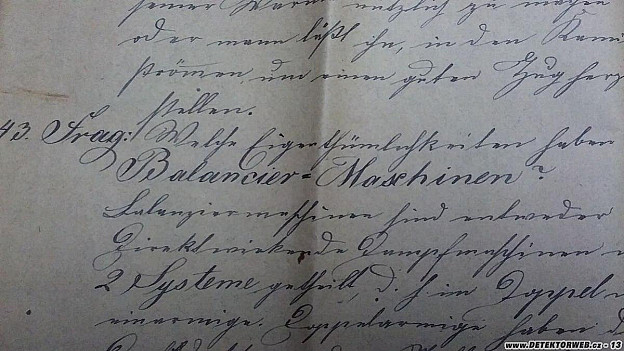 seiner Wärme nützlich zu machen
oder mann läßt ihn, in den Kami
strömen um einen guten Zug herzu
stellen.
43. Frag: Welche Eigenthümlichkeiten haben
Balancier=Maschinen?
Balanziermaschinen sind entweder
Direktwirkende Dampfmaschinen
2 Systeme getheilt, d. h. in Doppel
einarmige. Doppelarmige haben d
www.DETEKTORWEB.cz - 13